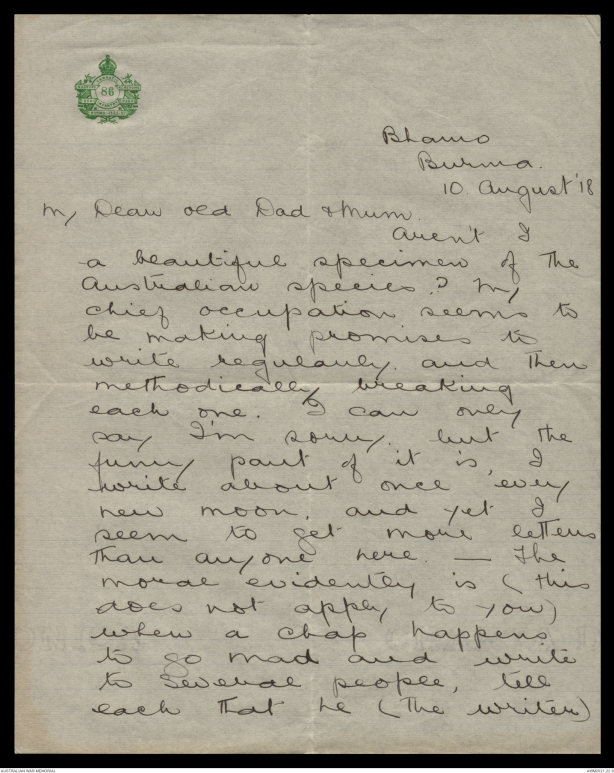 86
Bhamo
Burma.
10. August '18
My Dear old Dad & Mum.
Aren't I
a beautiful specimen of the
Australian species? My
chief occupation seems to
be making promises to
write regularly. and then
methodically breaking
each one. I can only
say I'm sorry. but the
funny part of it is, I
write about once every
new moon, and yet I
seem to get more letters
than anyone here. — The
moral evidently is (this
does not apply to you)
when a chap happens
to go mad and write
to several people, tell
each that he (the writer)
AUSTRALIAN WAR MEMORIAL